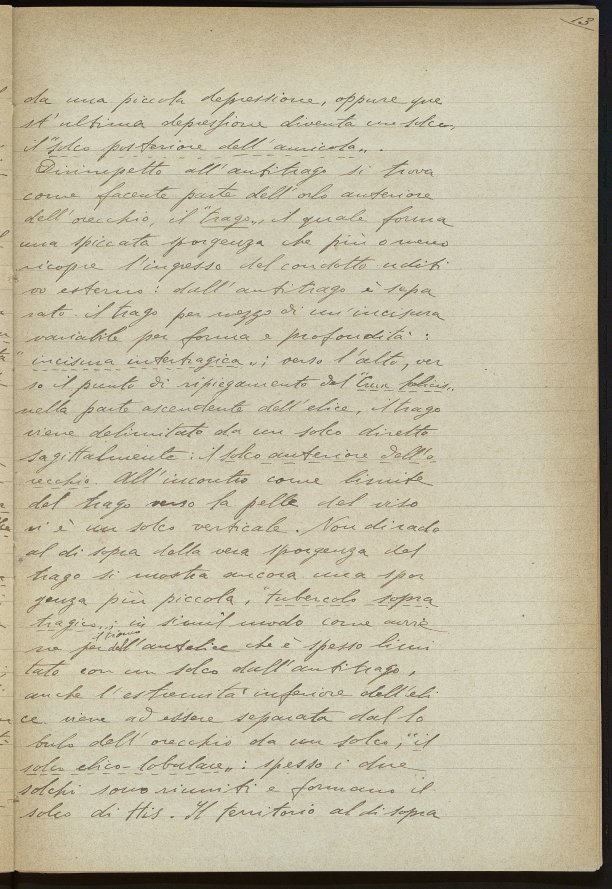 13
da una piccola depressione, oppure que
st'ultima depressione diventa un solco,
il "solco posteriore dell'auricola".
Dirimpetto all'antitrago si trova
come facente parte dell'orlo anteriore
dell'orecchio, il "trago", il quale forma
una spiccata sporgenza che più o meno
ricopre l'ingresso del condotto uditi
vo esterno: dall'antitrago è sepa
rato il trago per mezzo di un'incisura
variabile per forma e profondità:
"incisura intertragica"; verso l'alto, ver
so il punto di ripiegamento del "Crus helicis"
nella parte ascendente dell'elice, il trago
viene delimitato da un solco diretto
sagittalmente: il solco anteriore dell'o
recchio. All'incontro come limite
del trago verso la pelle del viso
vi è un solco verticale. Non di rado
al di sopra della vera sporgenza del
trago si mostra ancora una spor
genza più piccola, "tubercolo sopra
tragico"; in simil modo come avvie
ne per dell'antelice che è spesso limi
tato con un solco dall'antitrago,
anche l'estremità inferiore dell'eli
ce viene ad essere separata dal lo
bulo dell'orecchio da un solco, "il
solco elico-lobulare": spesso i due
solchi sono riuniti e formano il
solco di His. Il territorio al di sopra